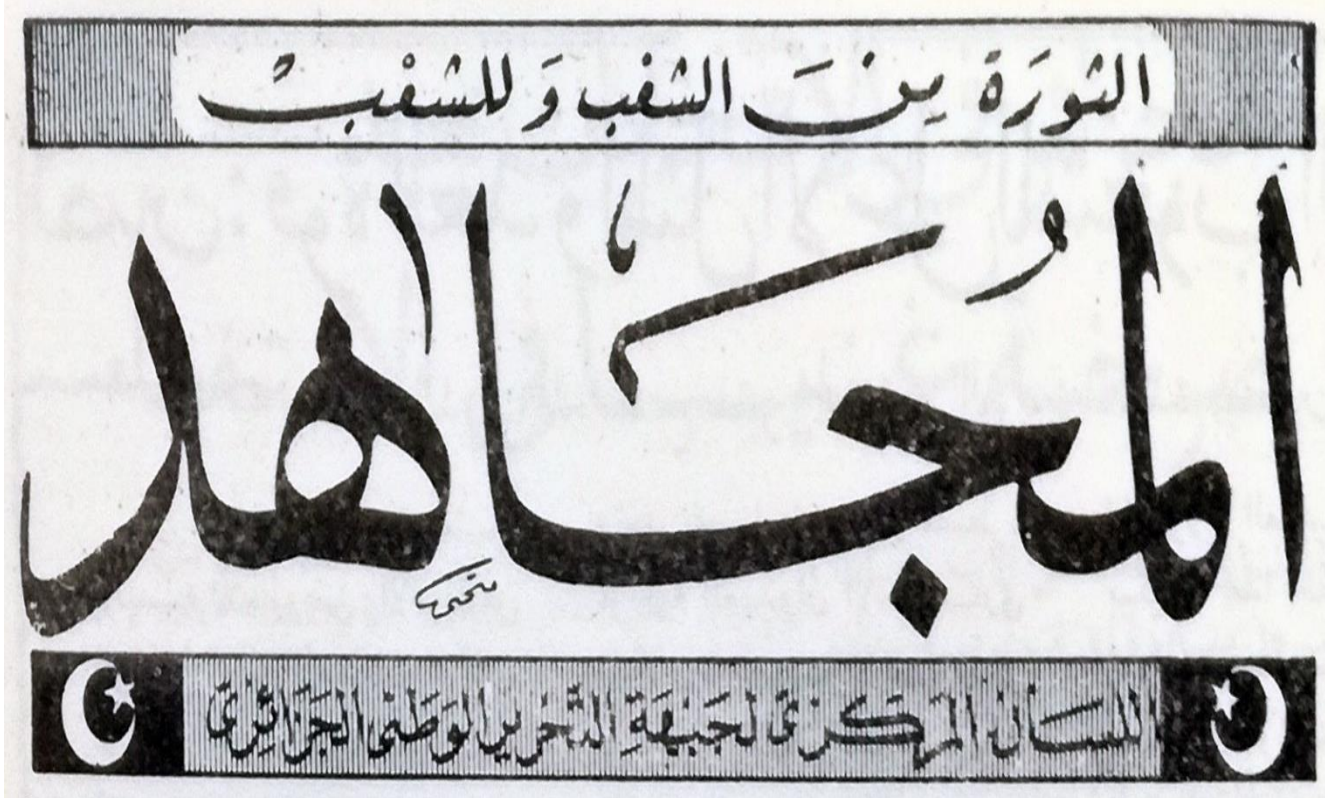 الثورَة مِنَ الشعْب وَ للشعْب
المُجَاهد
اللسَان المَركزى لجَبهَةِ التحْرير الوَطنى الجَزَائِرى